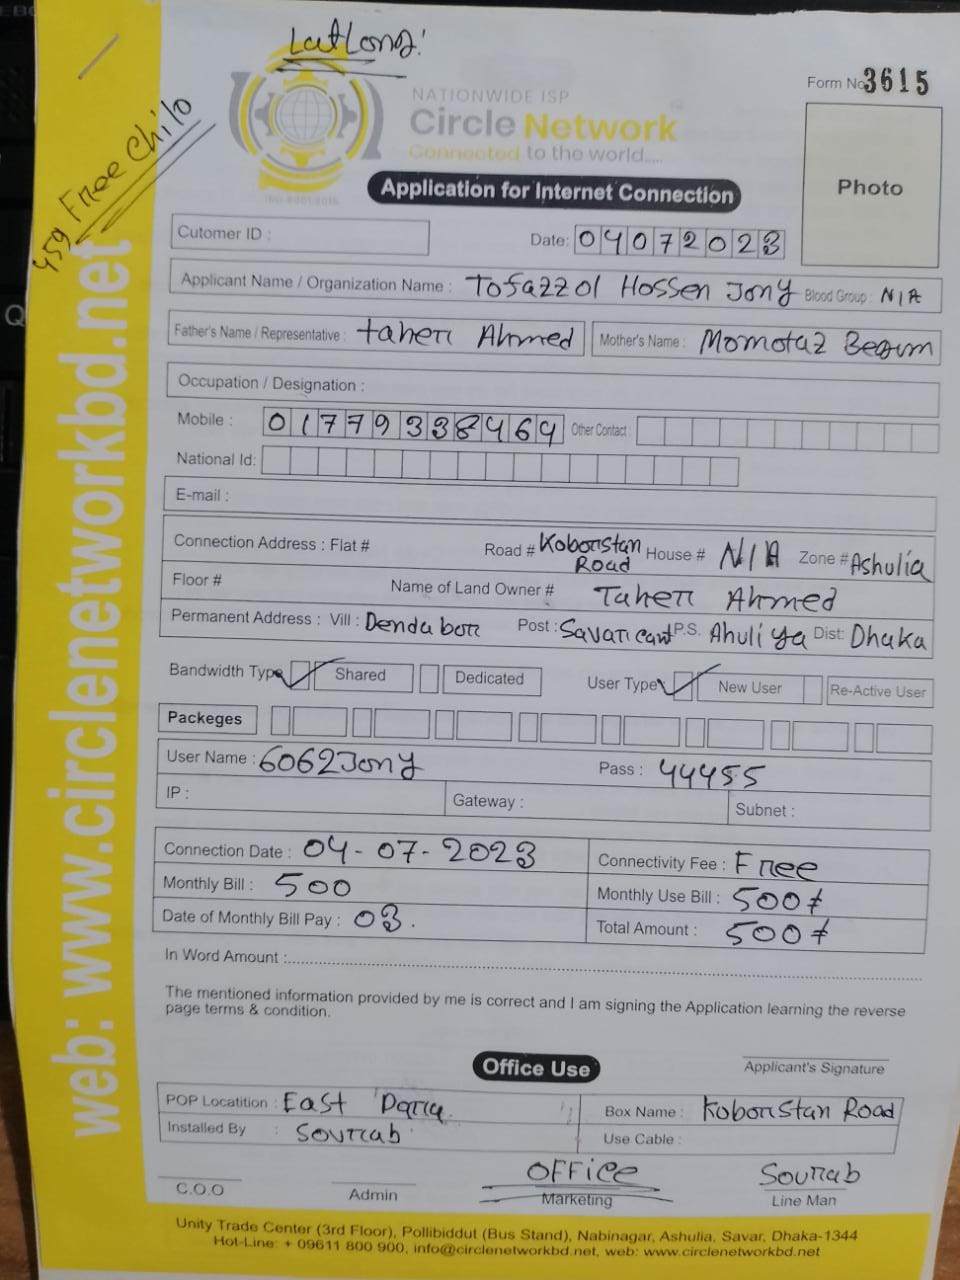 LatLong:
459 Free Chilo
Form No 3615
NATIONWIDE ISP
Circle Network
Connected to the world.....
Photo
Application for Internet Connection
Cutomer ID :
Date: 04072023
Applicant Name / Organization Name : Tofazzol Hossen Jony Blood Group : N/A
Father's Name / Representative : Taher Ahmed Mother's Name : Momotaz Begum
Occupation / Designation :
Mobile : 01779338464 Other Contact :
National Id:
E-mail :
Connection Address : Flat # Road # Koborstan Road House # N/A Zone # Ashulia
Floor # Name of Land Owner # Taher Ahmed
Permanent Address : Vill : Dendabor Post : Savar cant P.S. Ahuliya Dist: Dhaka
Bandwidth Type Shared Dedicated User Type New User Re-Active User
Packeges
User Name : 6062Jony Pass : 44455
IP : Gateway : Subnet :
Connection Date : 04-07-2023 Connectivity Fee : Free
Monthly Bill : 500 Monthly Use Bill : 500/
Date of Monthly Bill Pay : 03. Total Amount : 500/
In Word Amount :
The mentioned information provided by me is correct and I am signing the Application learning the reverse
page terms & condition.
Applicant's Signature
Office Use
POP Locatition : East Para Box Name : Koborstan Road
Installed By : Sourab Use Cable :
OFFice Sourab
C.O.O Admin Marketing Line Man
Unity Trade Center (3rd Floor), Pollibiddut (Bus Stand), Nabinagar, Ashulia, Savar, Dhaka-1344
Hot-Line: + 09611 800 900, info@circlenetworkbd.net, web: www.circlenetworkbd.net
web: www.circlenetworkbd.net